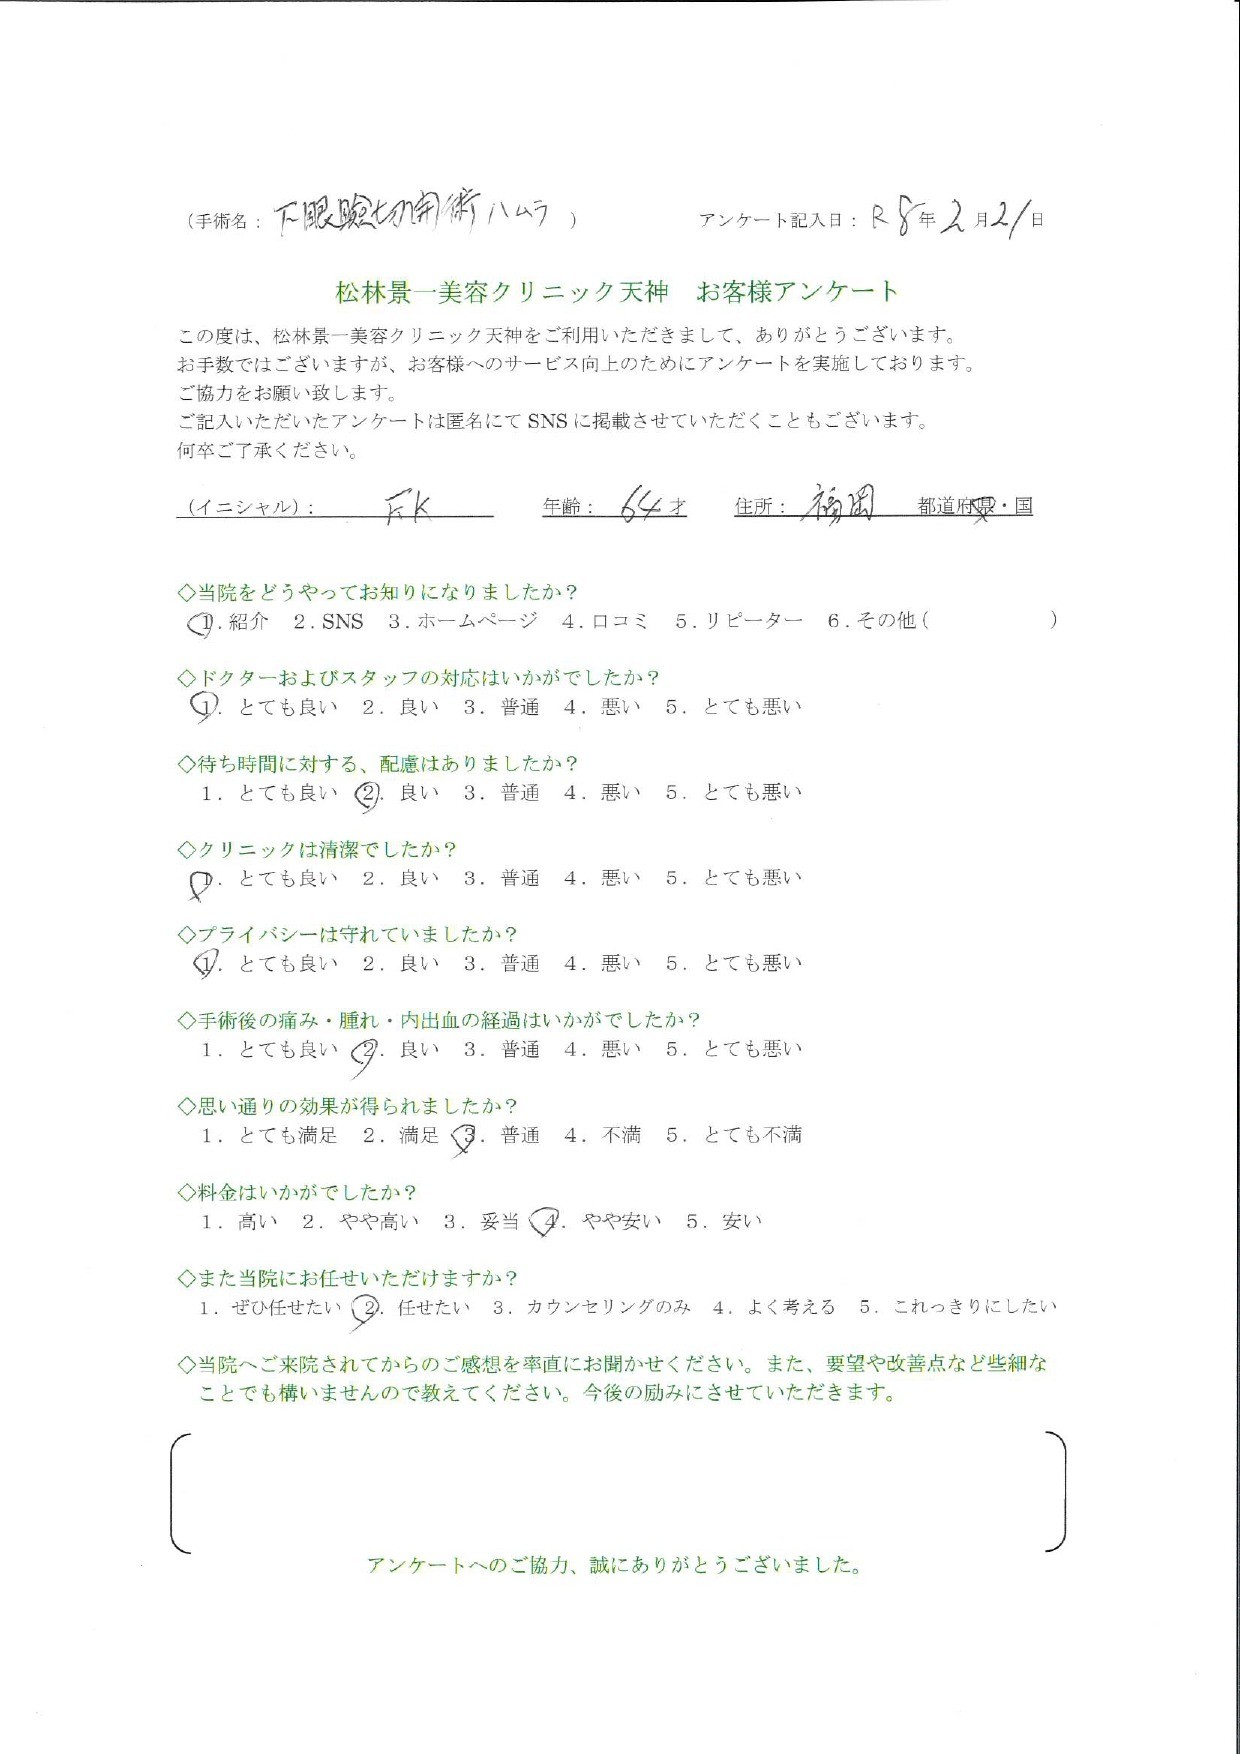 （手術名： 下眼瞼切開術ハムラ ） アンケート記入日： R8年2月21日
松林景一美容クリニック天神　お客様アンケート
この度は、松林景一美容クリニック天神をご利用いただきまして、ありがとうございます。
お手数ではございますが、お客様へのサービス向上のためにアンケートを実施しております。
ご協力をお願い致します。
ご記入いただいたアンケートは匿名にて SNS に掲載させていただくこともございます。
何卒ご了承ください。
（イニシャル）： F.K 年齢： 64才 住所： 福岡 都道府県・国
◇当院をどうやってお知りになりましたか？
1．紹介　2．SNS　3．ホームページ　4．口コミ　5．リピーター　6．その他（　　　　　　）
◇ドクターおよびスタッフの対応はいかがでしたか？
1．とても良い　2．良い　3．普通　4．悪い　5．とても悪い
◇待ち時間に対する、配慮はありましたか？
1．とても良い　2．良い　3．普通　4．悪い　5．とても悪い
◇クリニックは清潔でしたか？
1．とても良い　2．良い　3．普通　4．悪い　5．とても悪い
◇プライバシーは守れていましたか？
1．とても良い　2．良い　3．普通　4．悪い　5．とても悪い
◇手術後の痛み・腫れ・内出血の経過はいかがでしたか？
1．とても良い　2．良い　3．普通　4．悪い　5．とても悪い
◇思い通りの効果が得られましたか？
1．とても満足　2．満足　3．普通　4．不満　5．とても不満
◇料金はいかがでしたか？
1．高い　2．やや高い　3．妥当　4．やや安い　5．安い
◇また当院にお任せいただけますか？
1．ぜひ任せたい　2．任せたい　3．カウンセリングのみ　4．よく考える　5．これっきりにしたい
◇当院へご来院されてからのご感想を率直にお聞かせください。また、要望や改善点など些細な
ことでも構いませんので教えてください。今後の励みにさせていただきます。
アンケートへのご協力、誠にありがとうございました。